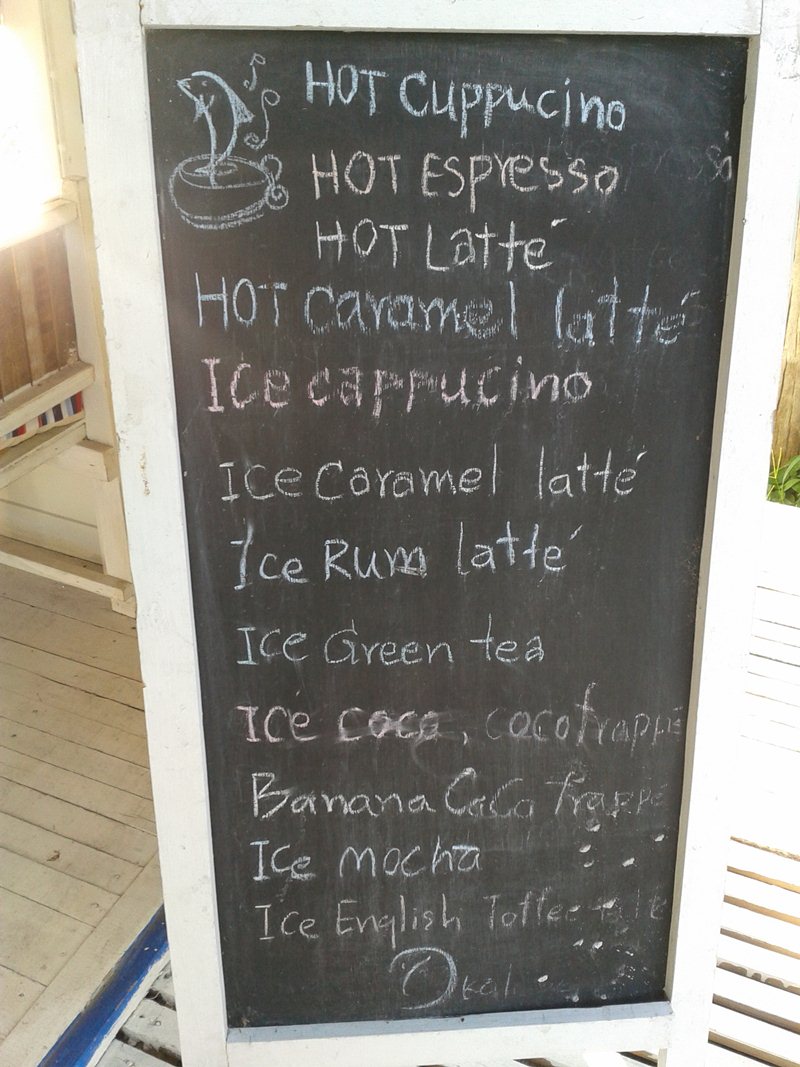 HOT Cuppucino
HOT Espresso
HOT Latté
HOT Caramel latté
Ice cappucino
Ice Caramel latté
Ice Rum latté
Ice Green tea
Ice coco, coco frappé
Banana CoCo frappe
Ice mocha
Ice English Toffee